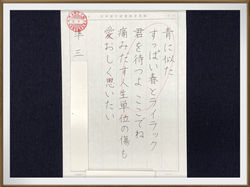 青に似た
すっぱい春とライラック
君を待つよ ここでね
痛みだす人生単位の傷も
愛おしく思いたい